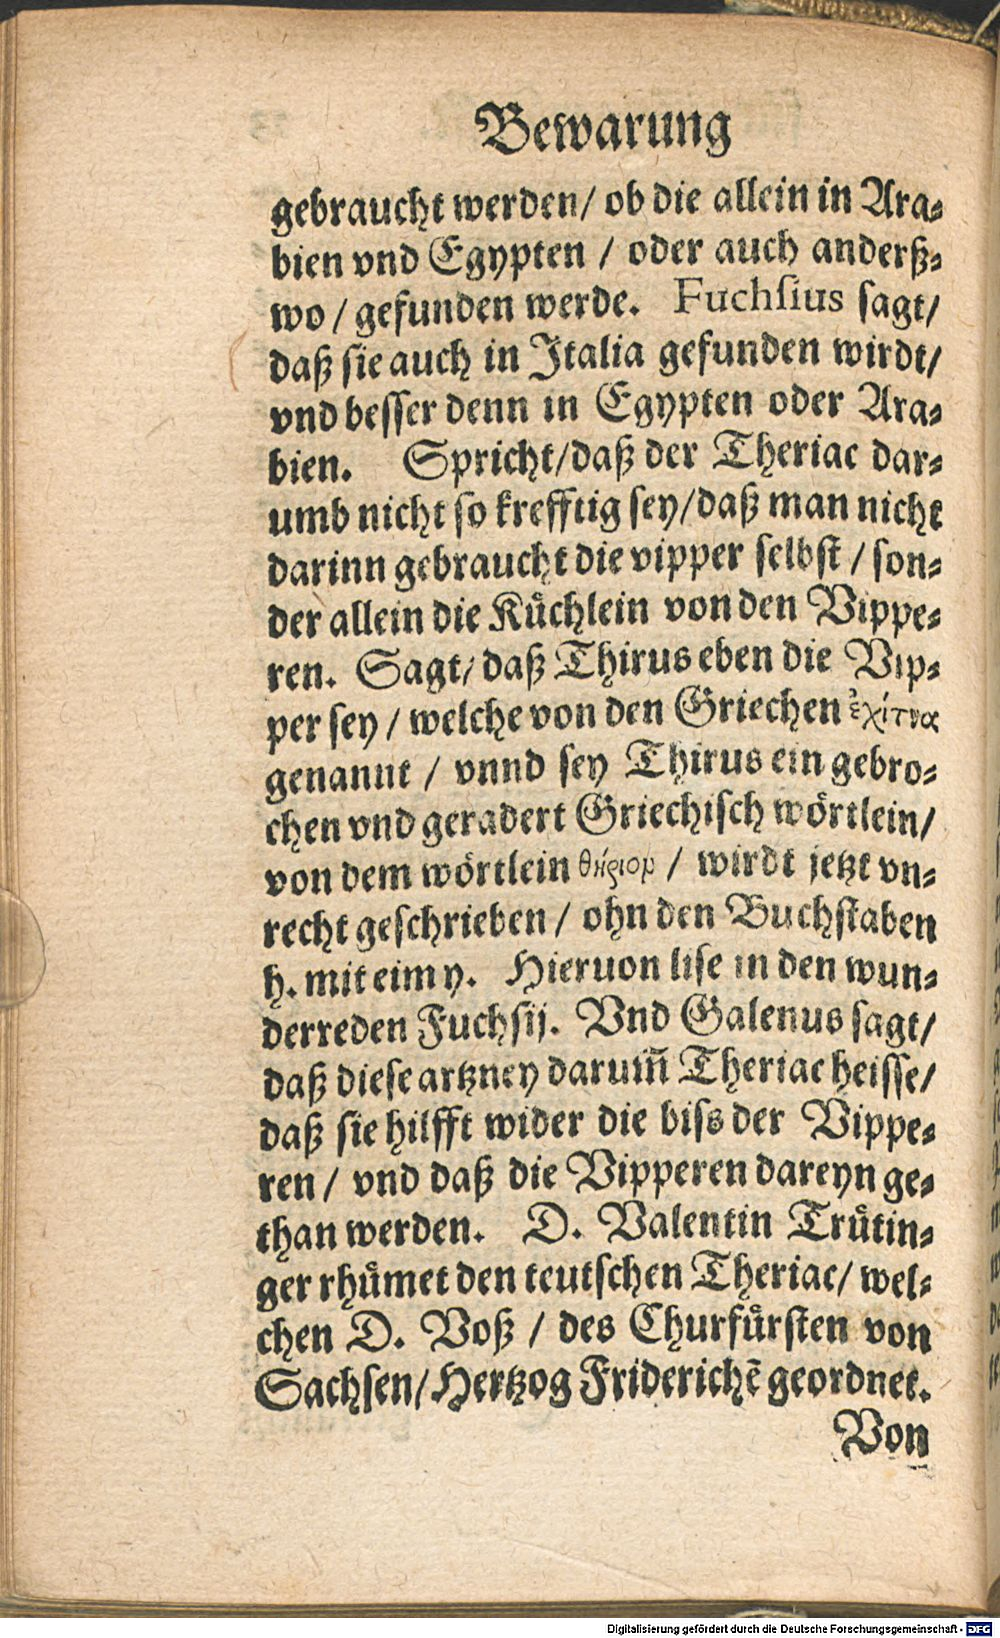 Bewarung
gebraucht werden/ ob die allein in Ara⸗
bien vnd Egypten / oder auch anderß⸗
wo / gefunden werde. Fuchſius ſagt/
daß ſie auch in Italia gefunden wirdt/
vnd beſſer denn in Egypten oder Ara⸗
bien. Spricht/daß der Theriac dar⸗
umb nicht ſo krefftig ſey/daß man nicht
darinn gebraucht die vipper ſelbſt / ſon⸗
der allein die Kuͤchlein von den Vippe⸗
ren. Sagt/ daß Thirus eben die Vip⸗
per ſey / welche von den Griechen ἐχίτνα
genannt / vnnd ſey Thirus ein gebro⸗
chen vnd geradert Griechiſch woͤrtlein/
von dem woͤrtlein θήριορ / wirdt jetzt vn⸗
recht geſchrieben / ohn den Buchſtaben
h. mit eim y. Hieruon liſe in den wun⸗
derreden Fuchſij. Vnd Galenus ſagt/
daß dieſe artzney darum̃ Theriac heiſſe/
daß ſie hilfft wider die biſs der Vippe⸗
ren / vnd daß die Vipperen dareyn ge⸗
than werden. D. Valentin Truͤtin⸗
ger rhuͤmet den teutſchen Theriac/ wel⸗
chen D. Voß / des Churfuͤrſten von
Sachſen/ Hertzog Friderichẽ geordnet.
Von
Digitalisierung gefördert durch die Deutsche Forschungsgemeinschaft - DFG